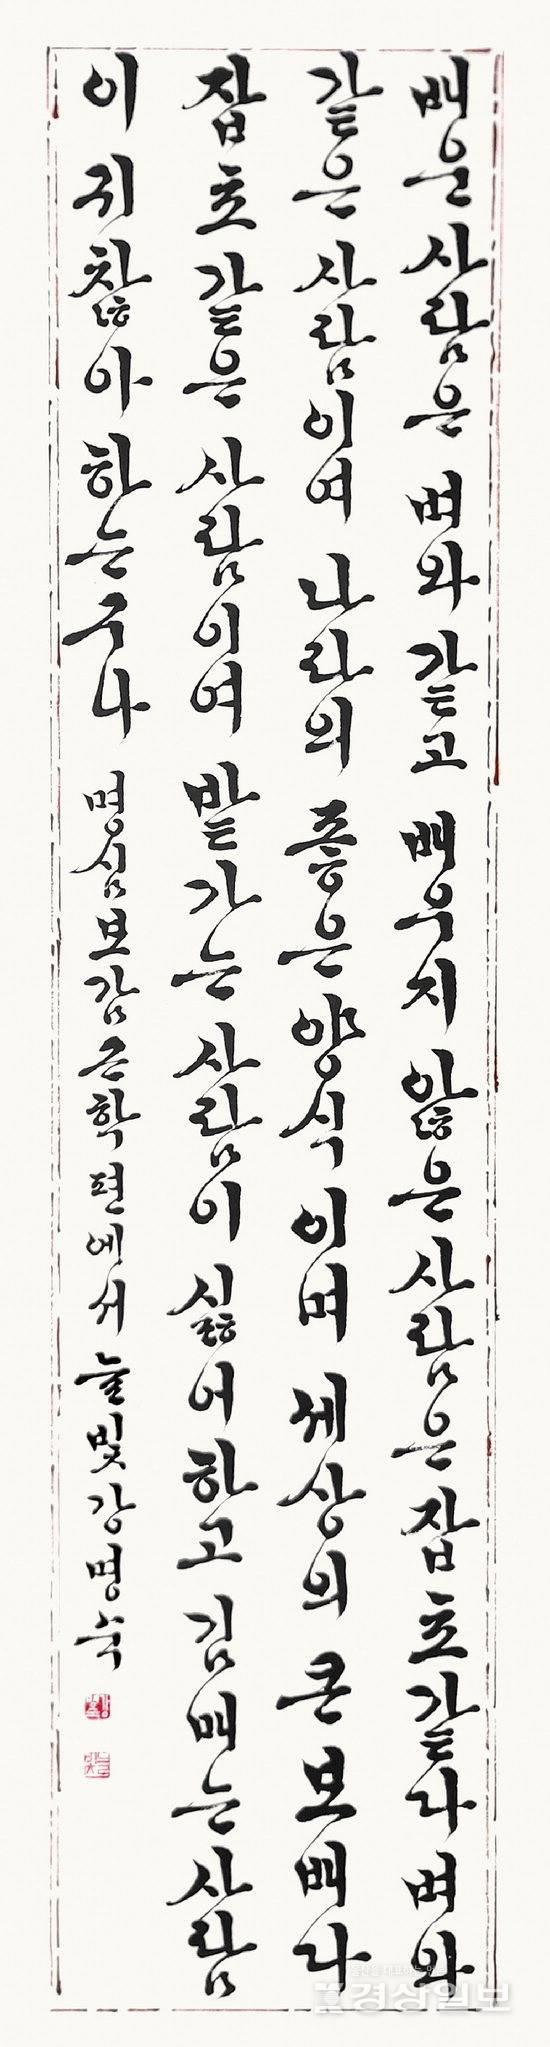 배운 사람은 벼와 같고 배우지 않은 사람은 잡초 같다 벼와
같은 사람이여 나라의 좋은 양식이며 세상의 큰 보배다
잡초 같은 사람이여 밭 가는 사람이 싫어하고 김매는 사람
이 귀찮아 하는구나 명심보감 근학편에서 늘빛 강명숙
경상일보